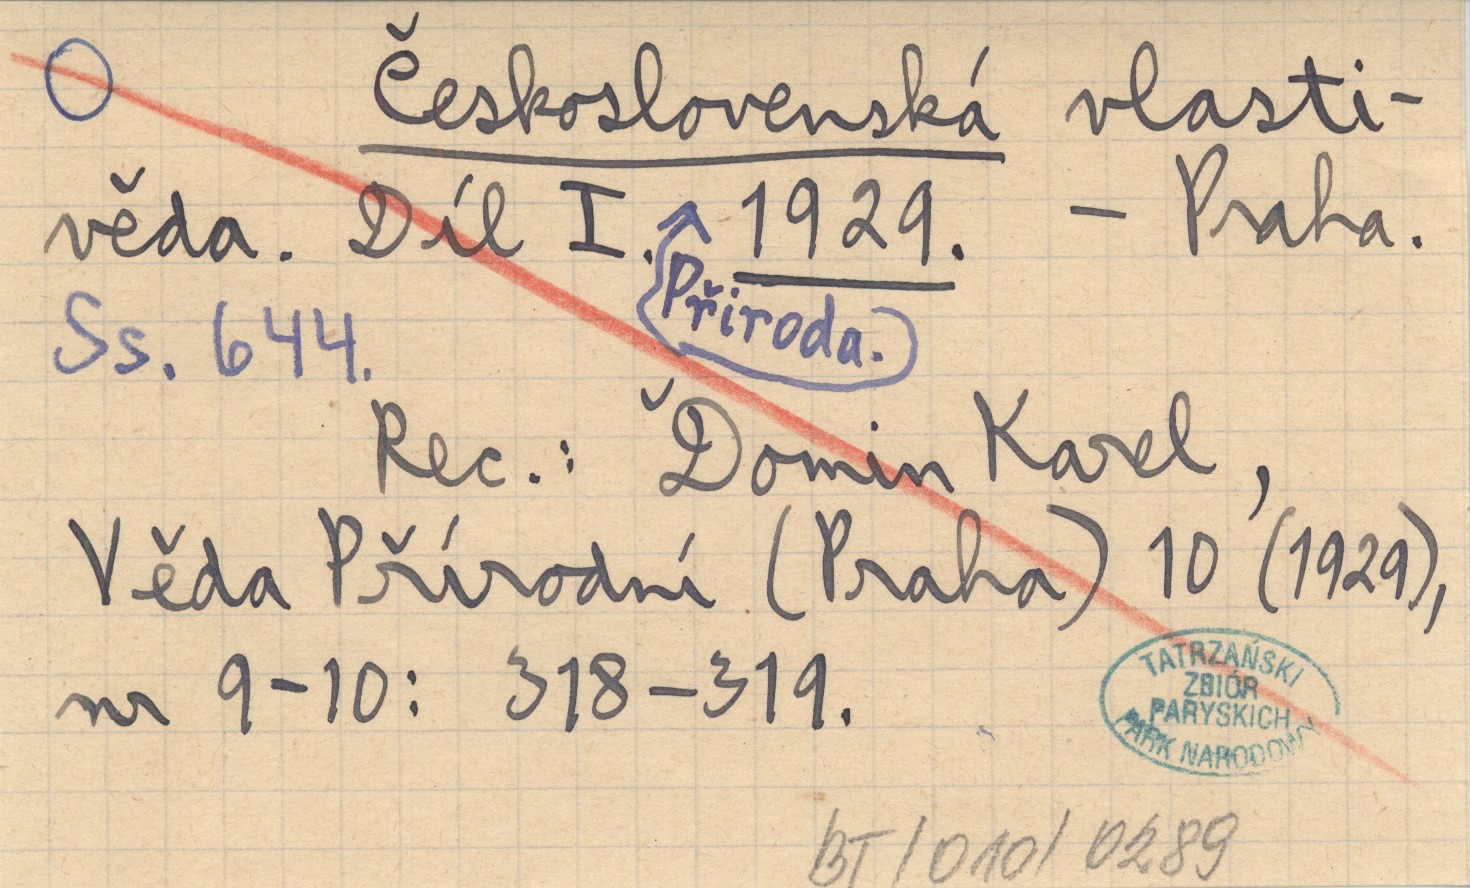 Československá vlasti-
věda. Díl I. 1929. – Praha.
Příroda.
Ss. 644.
Rec.: Ďomin Karel,
Věda Přírodní (Praha) 10 (1929),
nr 9–10: 318–319.
TATRZAŃSKI
ZBIÓR
PARYSKICH
PARK NARODOWY
BT/010/0289